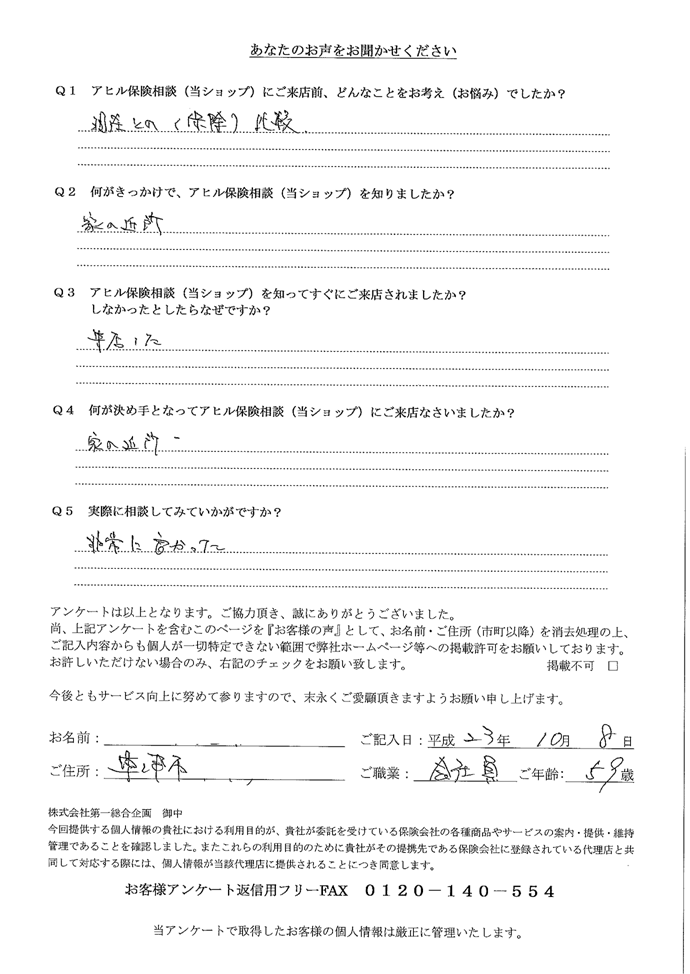 あなたのお声をお聞かせください
Q1 アヒル保険相談（当ショップ）にご来店前、どんなことをお考え（お悩み）でしたか？
現在との（保険）比較
Q2 何がきっかけで、アヒル保険相談（当ショップ）を知りましたか？
家の近所
Q3 アヒル保険相談（当ショップ）を知ってすぐにご来店されましたか？
しなかったとしたらなぜですか？
来店した
Q4 何が決め手となってアヒル保険相談（当ショップ）にご来店なさいましたか？
家の近所
Q5 実際に相談してみていかがですか？
非常に良かった
アンケートは以上となります。ご協力頂き、誠にありがとうございました。
尚、上記アンケートを含むこのページを『お客様の声』として、お名前・ご住所（市町以降）を消去処理の上、
ご記入内容からも個人が一切特定できない範囲で弊社ホームページ等への掲載許可をお願いしております。
お許しいただけない場合のみ、右記のチェックをお願い致します。 掲載不可 □
今後ともサービス向上に努めて参りますので、末永くご愛顧頂きますようお願い申し上げます。
お名前： ご記入日：平成 23年 10月 8日
ご住所： ご職業：会社員 ご年齢：59歳
株式会社第一総合企画 御中
今回提供する個人情報の貴社における利用目的が、貴社が委託を受けている保険会社の各種商品やサービスの案内・提供・維持
管理であることを確認しました。またこれらの利用目的のために貴社がその提携先である保険会社に登録されている代理店と共
同して対応する際には、個人情報が当該代理店に提供されることにつき同意します。
お客様アンケート返信用フリーFAX 0120－140－554
当アンケートで取得したお客様の個人情報は厳正に管理いたします。